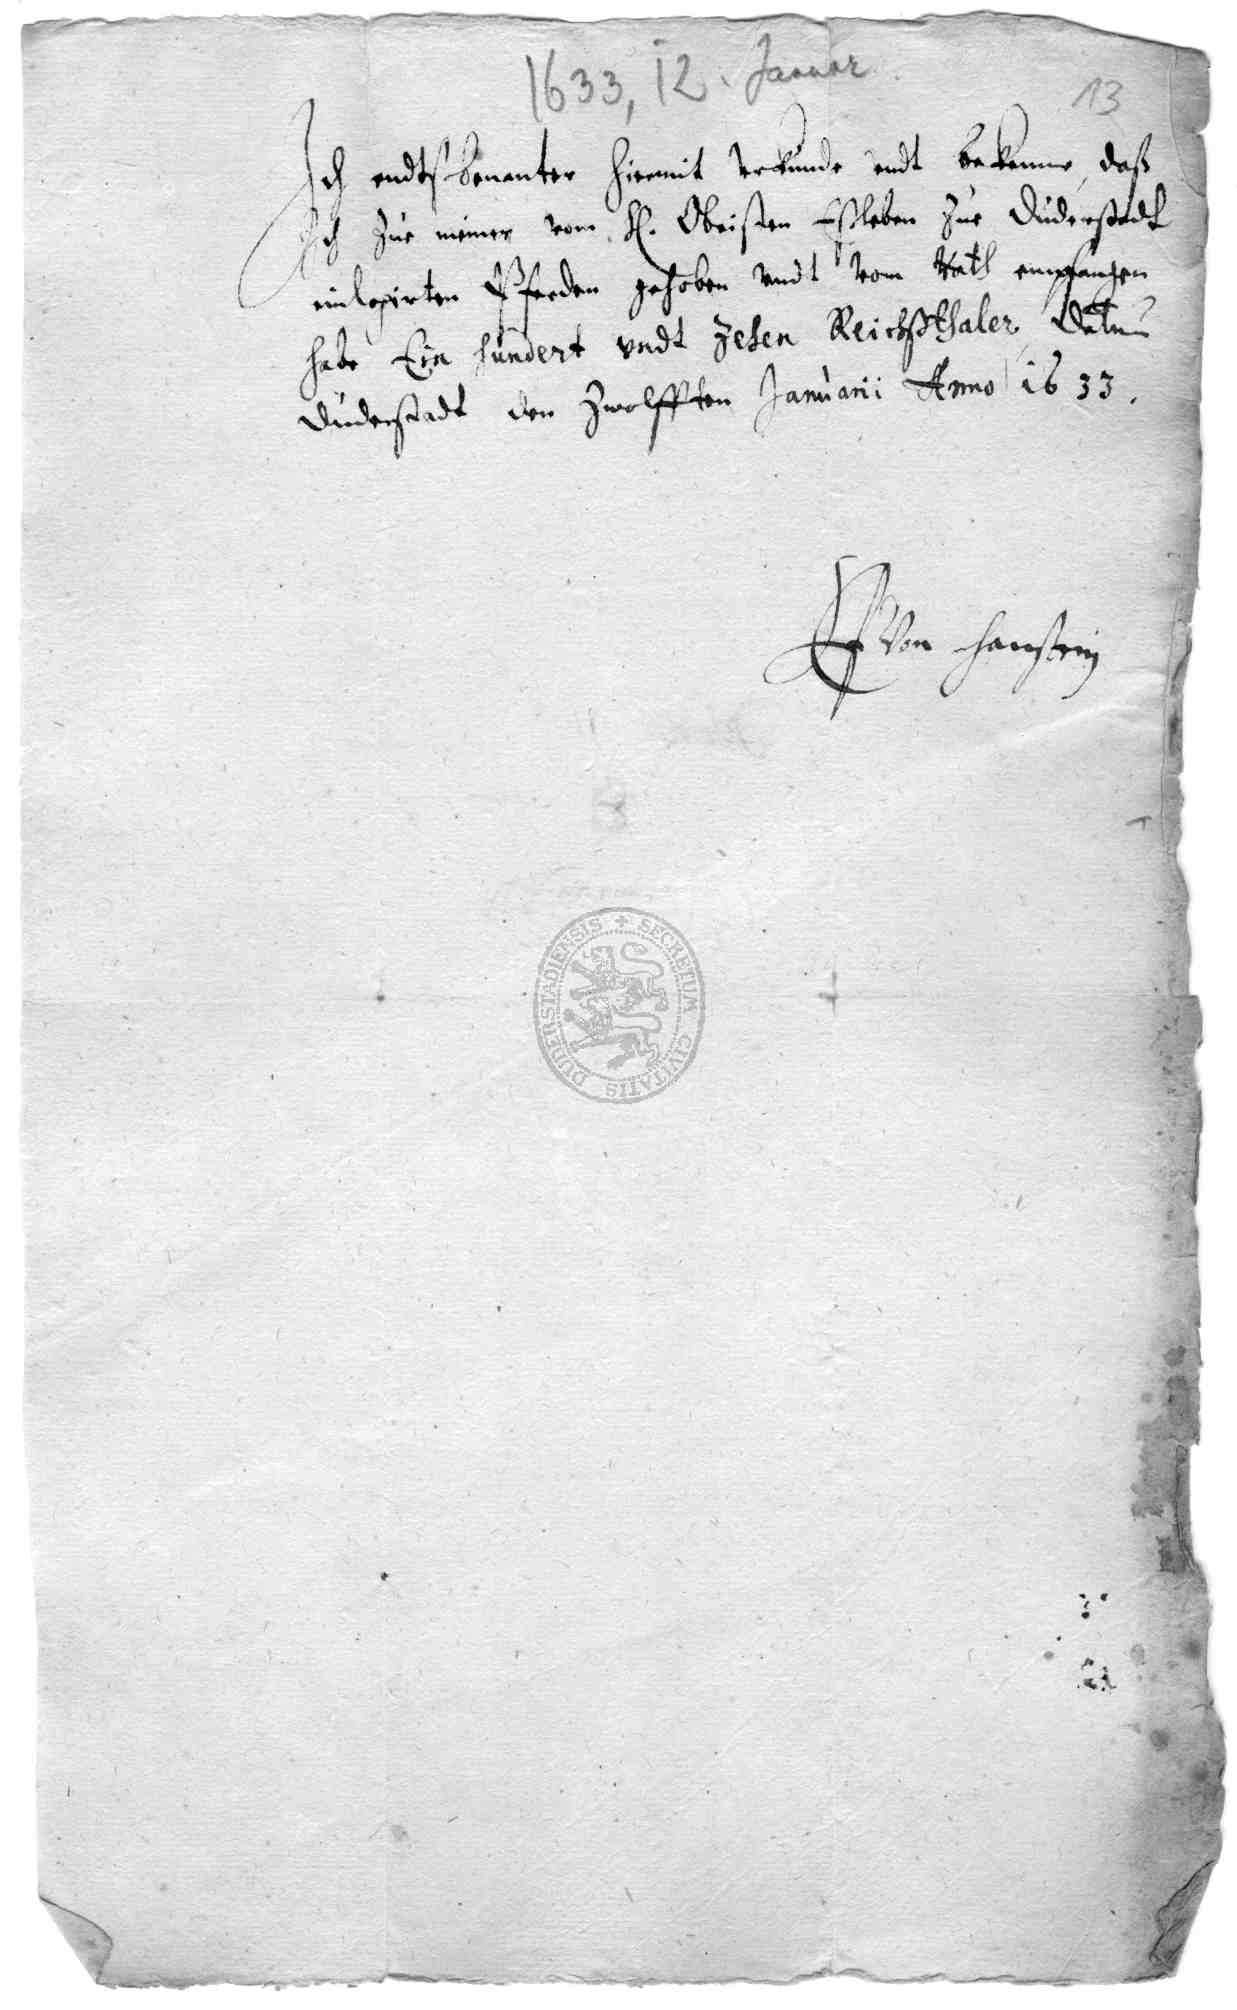 1633, 12. Januar
13
Ich endtsbenanter hiermit Urkunde undt bekenne, daß
Ich zue meiner vom H. Obristen Eßleben zue Duderstadt
einlogirten Pferden gehoben undt vom Rath empfangen
habe Ein hundert undt zehen Reichßthaler, Datum
Duderstadt den Zwolfften Januarii Anno 1633.
Von Hanstein
SECRETUM CIVITATIS DUDERSTADIENSIS